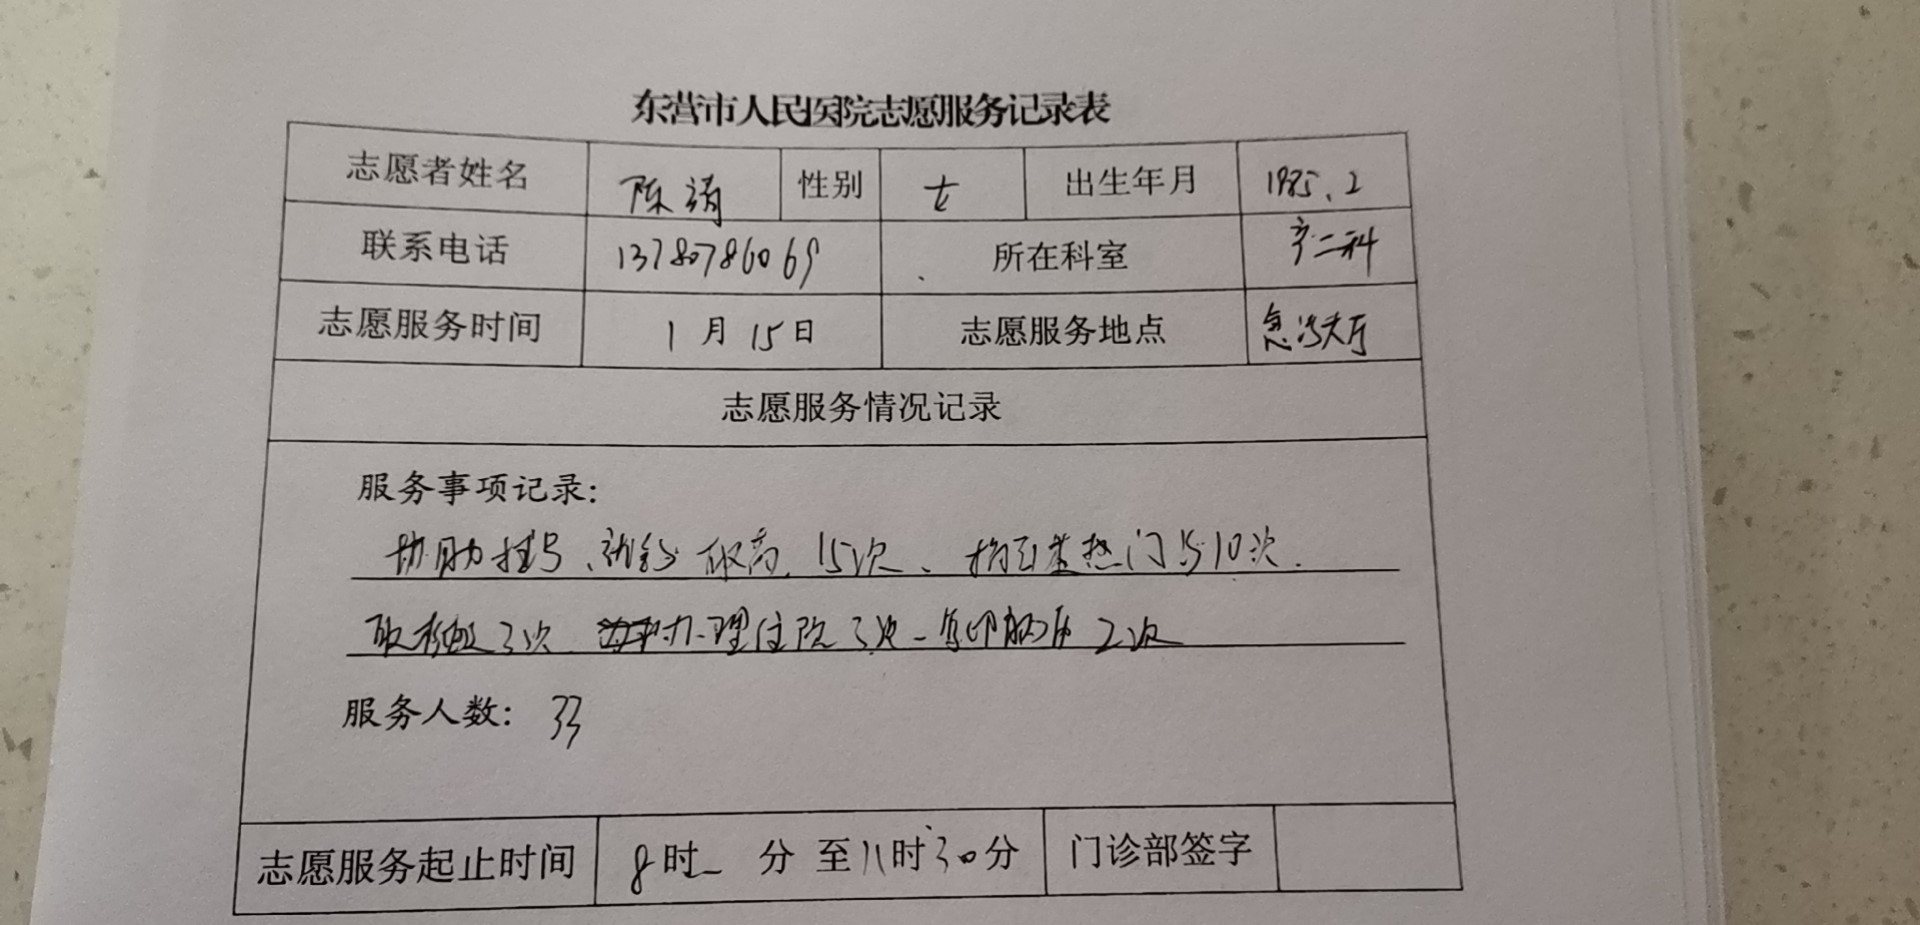 东营市人民医院志愿服务记录表
志愿者姓名 陈涓 性别 女 出生年月 1985.2
联系电话 13780786069 所在科室 产二科
志愿服务时间 1月15日 志愿服务地点 急诊大厅
志愿服务情况记录
服务事项记录:
协助挂号、就诊 15次、指引发热门诊10次.
取 3次 办理住院3次 复印 2次
服务人数: 33
志愿服务起止时间 8时 分 至11时30分 门诊部签字